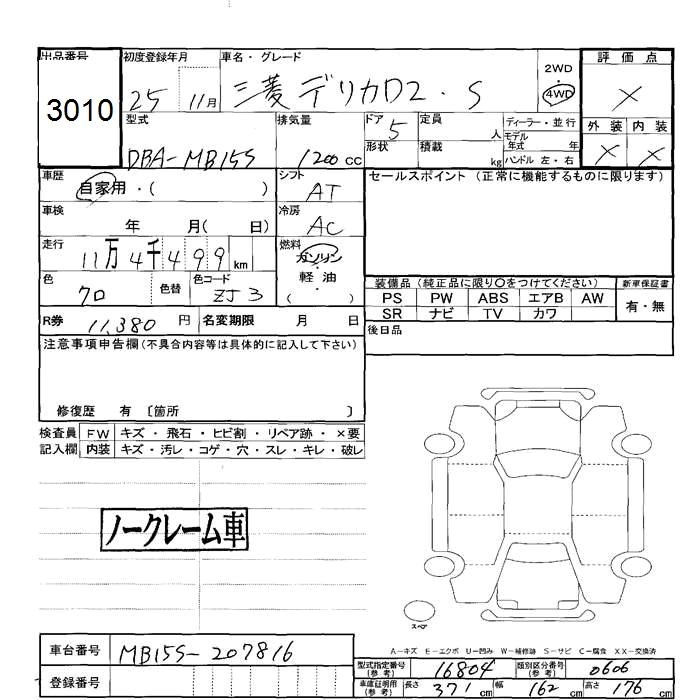 出品番号 初度登録年月 車名・グレード 2WD 評価点
3010 25 11月 三菱 デリカD2・S 4WD ×
型式 排気量 ドア 定員 ディーラー・並行 外装 内装
5 人 モデル
年式 年
DBA-MB15S 1200cc 形状 積載 kg ハンドル 左・右 × ×
車歴 シフト セールスポイント (正常に機能するものに限ります)
自家用・( ) AT
車検 冷房
年 月( 日) AC
走行 燃料
11万4千499km ガソリン・
軽油
色 色替 色コード ( )
クロ ZJ3
装備品 (純正品に限り○をつけてください) 新車保証書
PS PW ABS エアB AW 有・無
SR ナビ TV カワ
R券 11,380円 名変期限 月 日 後日品
注意事項申告欄(不具合内容等は具体的に記入して下さい)
修復歴 有 〔箇所 〕
検査員 FW キズ・飛石・ヒビ割・リペア跡・×要
記入欄 内装 キズ・汚レ・コゲ・穴・スレ・キレ・破レ
ノークレーム車
スペア
A-キズ E-エクボ U-凹み W-補修跡 S-サビ C-腐食 XX-交換済
車台番号 MB15S-207816
型式指定番号(参考) 16804 類別区分番号(参考) 0606
登録番号 車庫証明用(参考) 長さ 371cm 幅 162cm 高さ 176cm